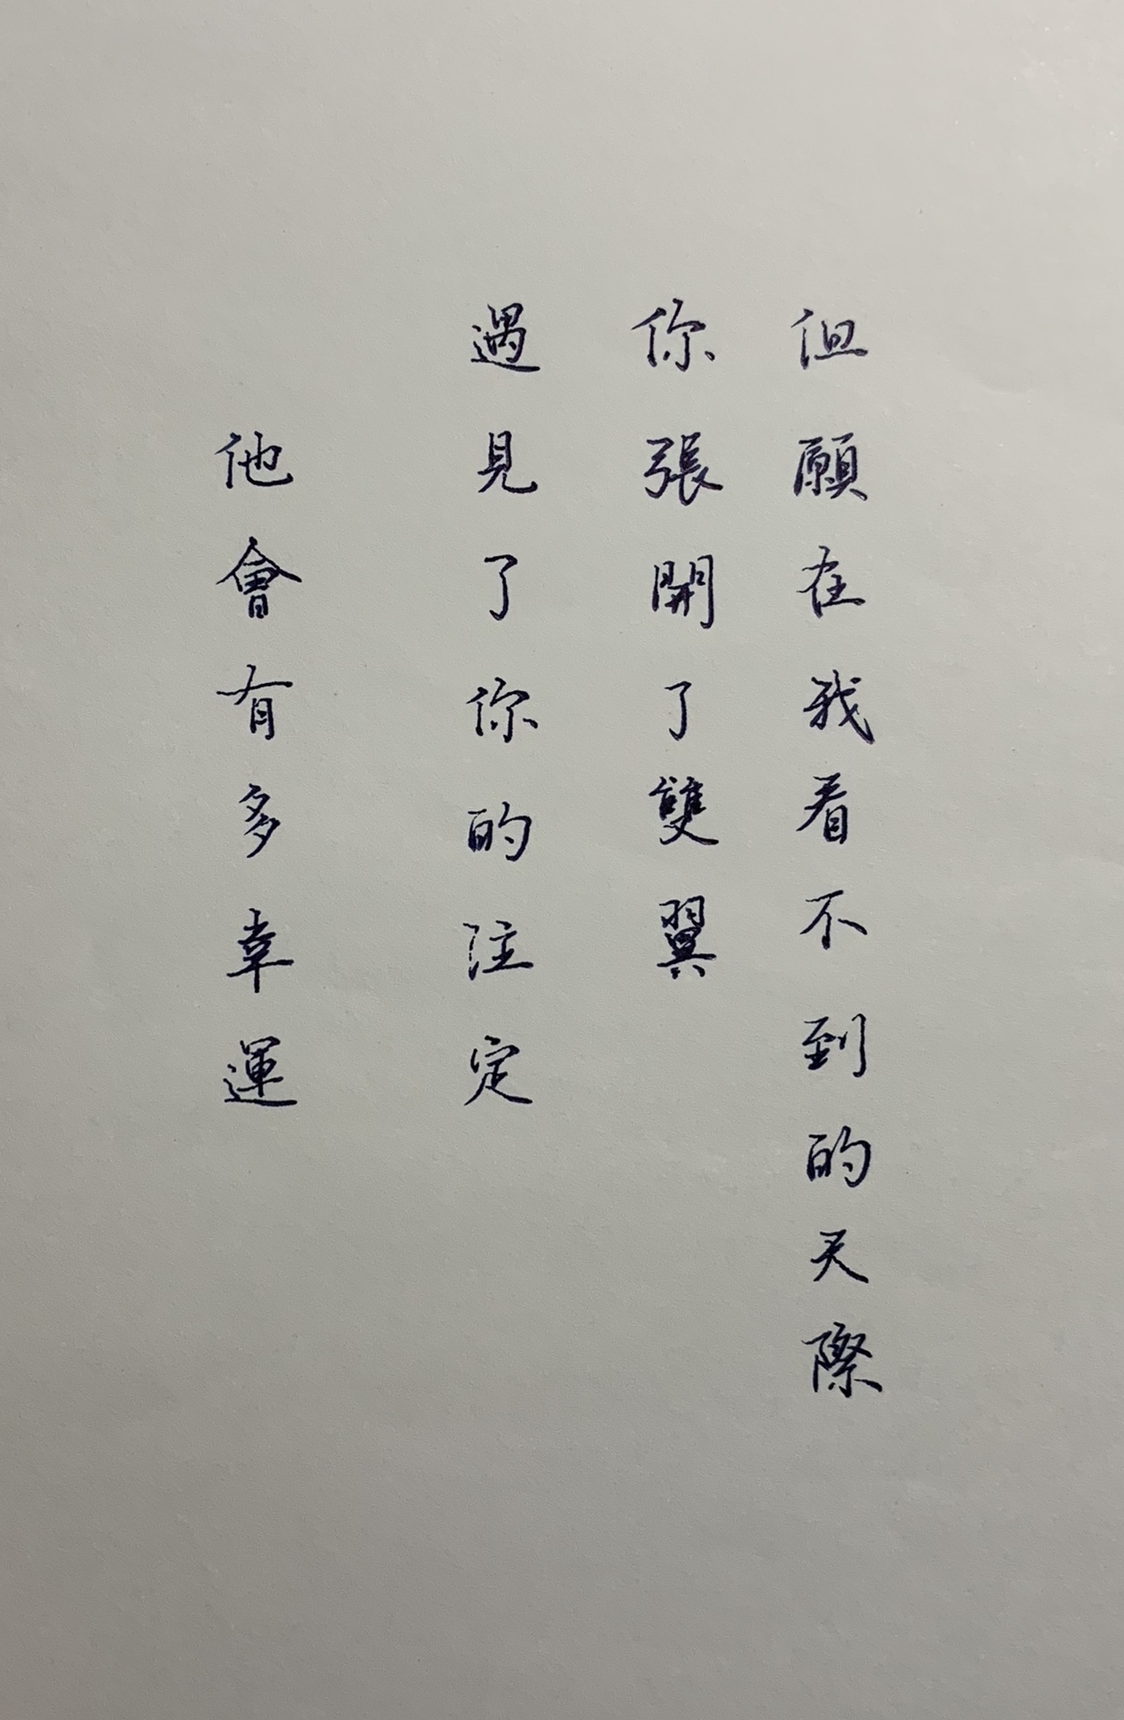 但願在我看不到的天際
你張開了雙翼
遇見了你的注定
他會有多幸運